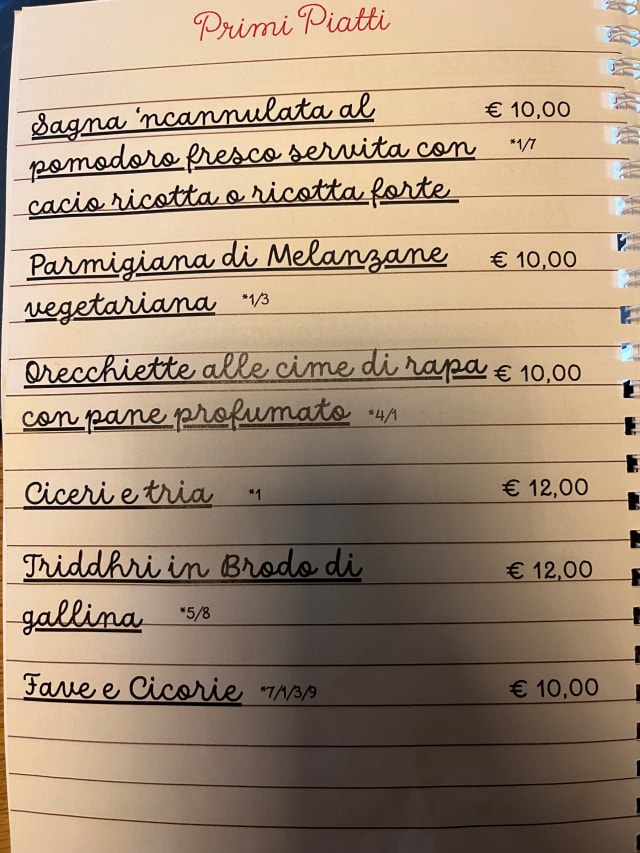 Primi Piatti
Sagna 'ncannulata al € 10,00
pomodoro fresco servita con *1/7
cacio ricotta o ricotta forte
Parmigiana di Melanzane € 10,00
vegetariana *1/3
Orecchiette alle cime di rapa € 10,00
con pane profumato *4/1
Ciceri e tria *1 € 12,00
Triddhri in Brodo di € 12,00
gallina *5/8
Fave e Cicorie *7/1/3/9 € 10,00